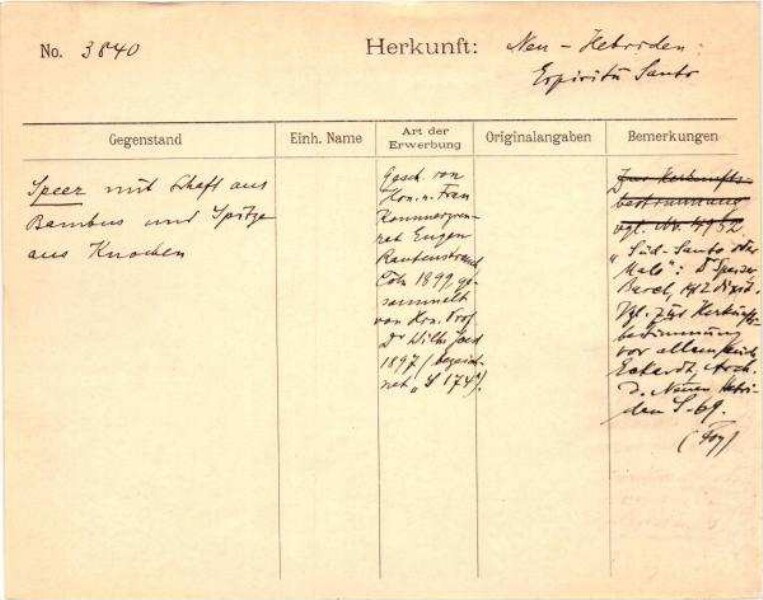 No. 3840
Herkunft: Neu-Hebriden:
Espiritu Santo
Gegenstand
Einh. Name
Art der
Erwerbung
Originalangaben
Bemerkungen
Speer mit Schaft aus
Bambus und Spitze
aus Knochen
Gesch. von
Hrn. u. Frau
Kommerzien-
rat Eugen
Rautenstrauch
Cöln 1899, ge-
sammelt
von Hrn. Prof.
Dr Wilh. Joest
1897 (bezeich-
net „S 174").
Zur Herkunfts-
bestimmung
vgl. No. 4952
„Süd-Santo oder
Malo": Dr Speiser
Basel, 1912 dixit.
Vgl. zur Herkunfts-
bestimmung
vor allem auch
Eckardt, Arch.
d. Neuen Hebri-
den S. 69.
(Foy)